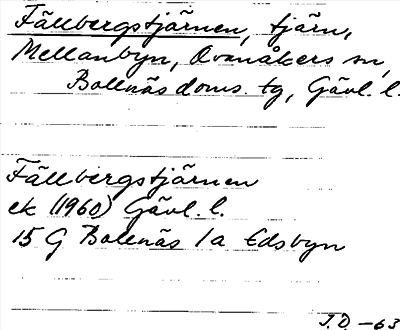 Fällbergstjärnen, tjärn,
Mellanbyn, Ovanåkers sn,
Bollnäs doms. tg, Gävl. l.
Fällbergstjärnen
ek (1960) Gävl. l.
15 G Bollnäs 1a Edsbyn
J.D. -63